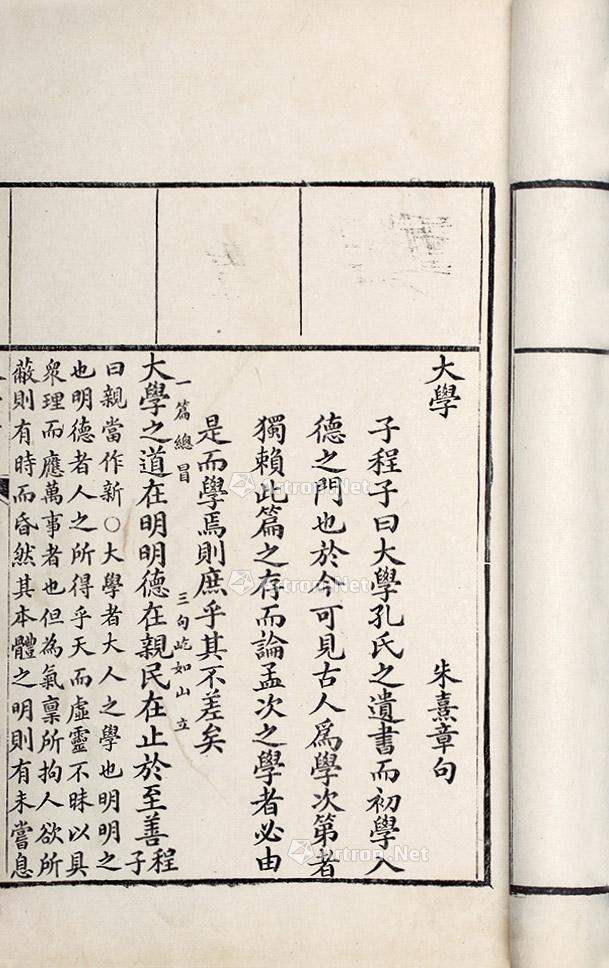 大學 朱熹章句
子程子曰大學孔氏之遺書而初學入
德之門也於今可見古人為學次第者
獨賴此篇之存而論孟次之學者必由
是而學焉則庶乎其不差矣
一篇總冒 三句屹如山立
大學之道在明明德在親民在止於至善程子
曰親當作新○大學者大人之學也明明之
也明德者人之所得乎天而虛靈不昧以具
衆理而應萬事者也但為氣稟所拘人欲所
蔽則有時而昏然其本體之明則有未嘗息
Artron.Net
Artron.Net
Artron.Net